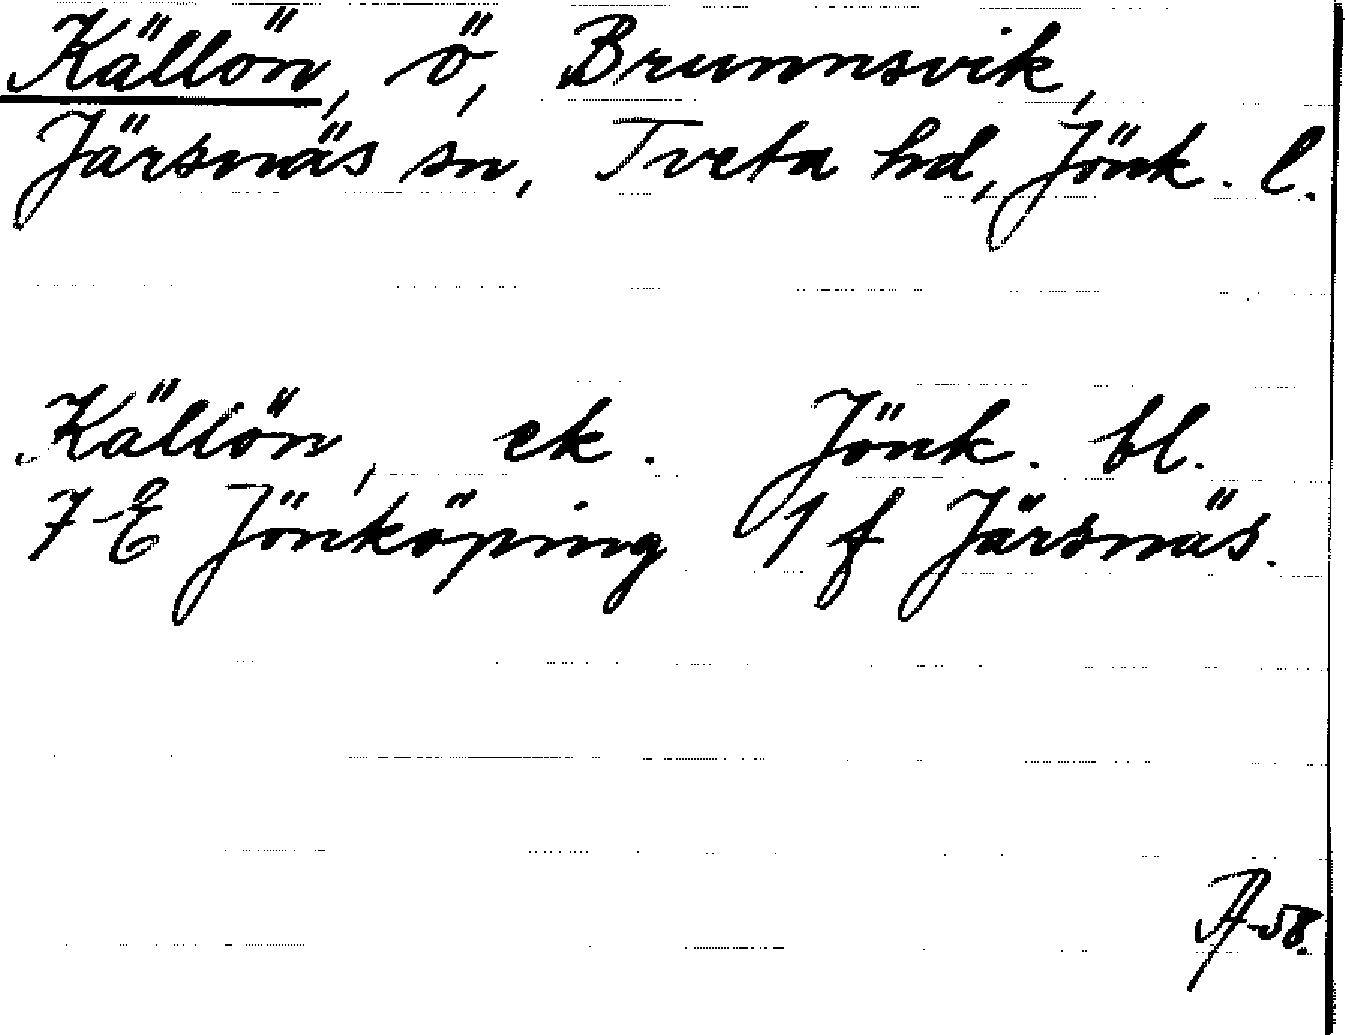 Källön, ö, Brunnsvik,
Järsnäs sn, Tveta hd, Jönk. l.
Källön, ek. Jönk. bl.
7 E Jönköping 1 f Järsnäs.
-58.